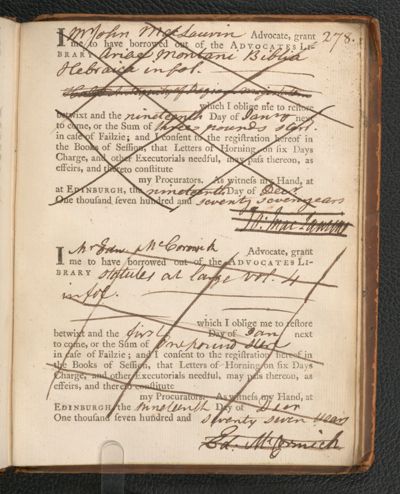 278.
I Mr John McLaurin Advocate, grant
me to have borrowed out of the ADVOCATES LI-
BRARY Ariae Montani Biblia
Hebraica in fol.
which I oblige me to restore
betwixt and the nineteenth Day of Janry next
to come, or the Sum of three pounds sterl.
in case of Failzie; and I consent to the registration hereof in
the Books of Session, that Letters of Horning on six Days
Charge, and other Executorials needful, may pass thereon, as
effeirs, and thereto constitute
my Procurators. As witness my Hand, at
at EDINBURGH, the nineteenth Day of Decr
One thousand seven hundred and seventy seven years
I Mr Edw. McCormick Advocate, grant
me to have borrowed out of the ADVOCATES LI-
BRARY statutes at large vol. 4
in fol.
which I oblige me to restore
betwixt and the first Day of Jan next
to come, or the Sum of one pound sterl
in case of Failzie; and I consent to the registration hereof in
the Books of Session, that Letters of Horning on six Days
Charge, and other Executorials needful, may pass thereon, as
effeirs, and thereto constitute
my Procurators. As witness my Hand, at
EDINBURGH, the nineteenth Day of Decr
One thousand seven hundred and seventy seven years
Ed. McCormick